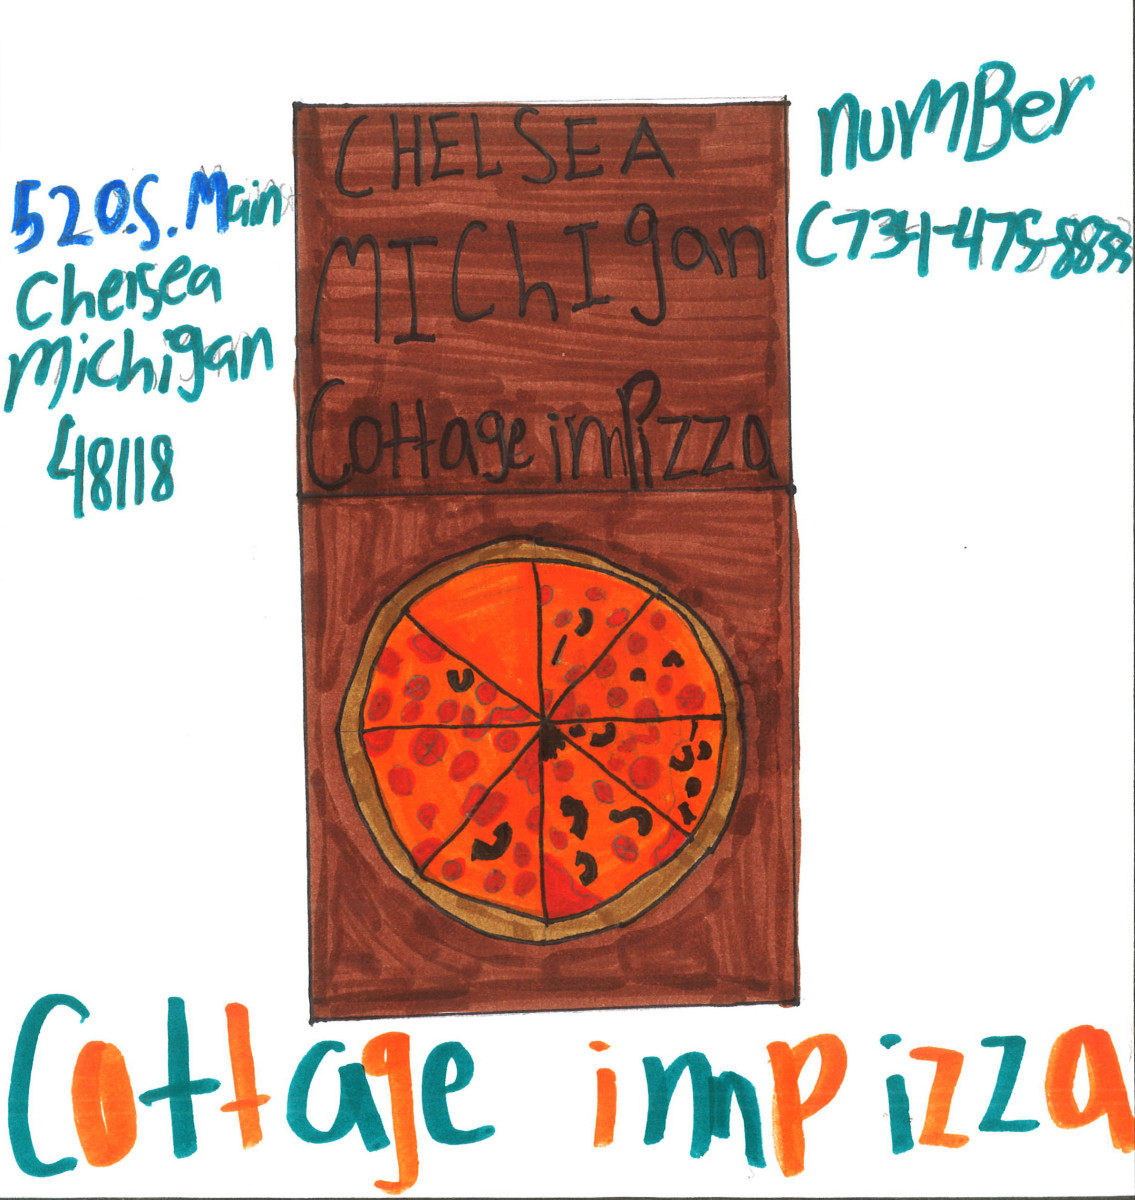 CHELSEA
MIChIgan
Cottage imPizza
520.S. Main
Chelsea
michigan
48118
numBer
(734-475-8833
Cottage impizza